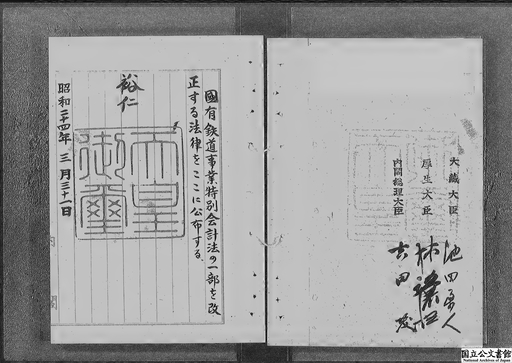 大藏大臣 池田勇人
厚生大臣 林讓治
内閣総理大臣 吉田茂
國有鉄道事業特別会計法の一部を改
正する法律をここに公布する。
裕仁
天皇御璽
昭和二十四年三月三十一日
国立公文書館
National Archives of Japan